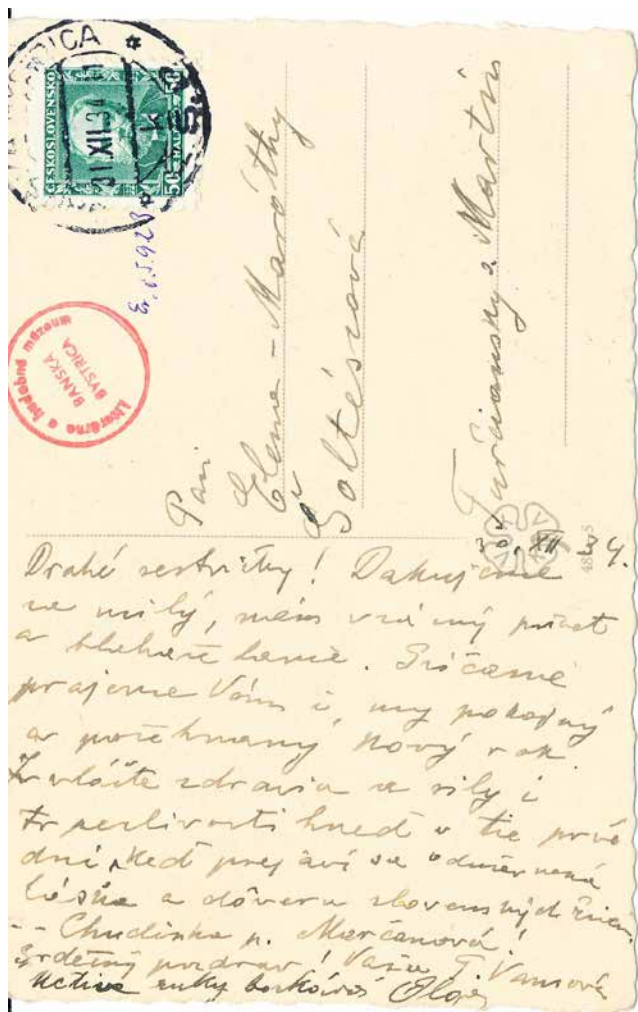 BYSTRICA
ČESKOSLOVENSKO
50 HALÉŘŮ 50
31 XII 34
Literárne a hudobné múzeum
BANSKÁ
BYSTRICA
Pani
Elena-Maróthy
Šoltésová
Turčiansky s. Martin
30. XII 34.
Drahé sestričky! Ďakujeme
za milý, nám vzácny
a blahoželanie. Súčasne
prajeme Vám i my pokojný
a požehnaný Nový rok.
Zvlášte zdravia a sily i
trpezlivosti hneď v tie prvé
dni, keď prejaví sa
láska a dôvera slovenských žien.
-- Chudinka p. Marčanová!
Srdečný pozdrav! Vaša T Vansová
ruky Oľga